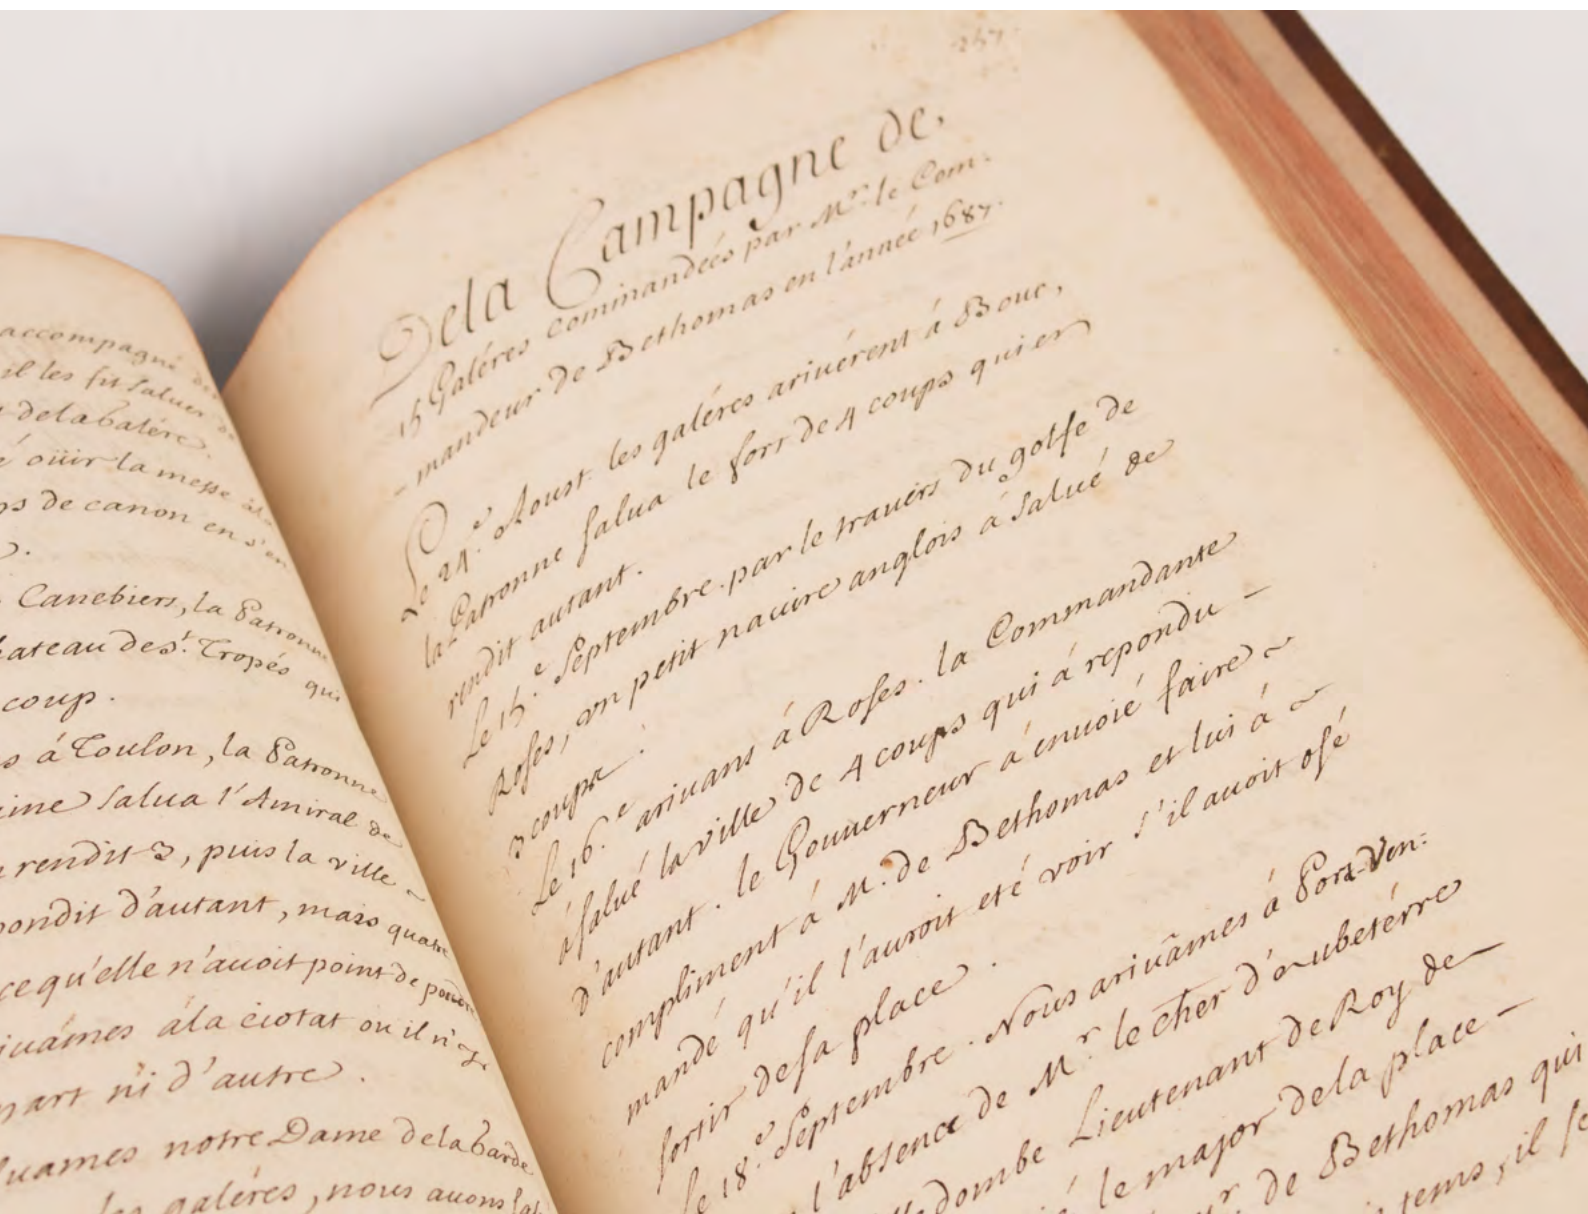 accompagné de
il les fit saluer de
delabalére
é oüir la messe àla
ps de canon en s'en
Canebiers, la Patronne
hateau des.t Tropés qui
coup.
s á Toulon, la Patronne
ine salua l'Amiral de
rendit 3, puis la ville ~
pondit d'autant, mais quatre
ce qu'elle n'auoit point de
iuámes ála ciotat ou il n'
part ni d'autre.
luames notre Dame dela Garde
les galéres, nous auons
257
Dela Campagne de,
15 Galéres commandées par Mr. le Com-
-mandeur de Bethomas en l'année 1687.
Le 24.e Aoust les galéres ariuérent á Bouc,
la Patronne salua le fort de 4 coups qui en
rendit autant.
Le 15.e Septembre par le trauers du golfe de
Roses, vn petit nauire anglois á salué de
3 coups.
Le 16.e ariuans á Roses. la Commandante
á salué la ville de 4 coups qui á repondu -
d'autant. le Gouuerneur á enuoié faire ~
compliment á M. de Bethomas et lui á ~
mandé qu'il l'auroit eté voir s'il auoit osé
sortir desa place.
Le 18.e Septembre. Nous ariuâmes á Port-Ven-
l'absence de Mr. le cher d'Aubetérre
dombe Lieutenant de Roy de -
le major dela place -
r. de Bethomas qui
tems, il se